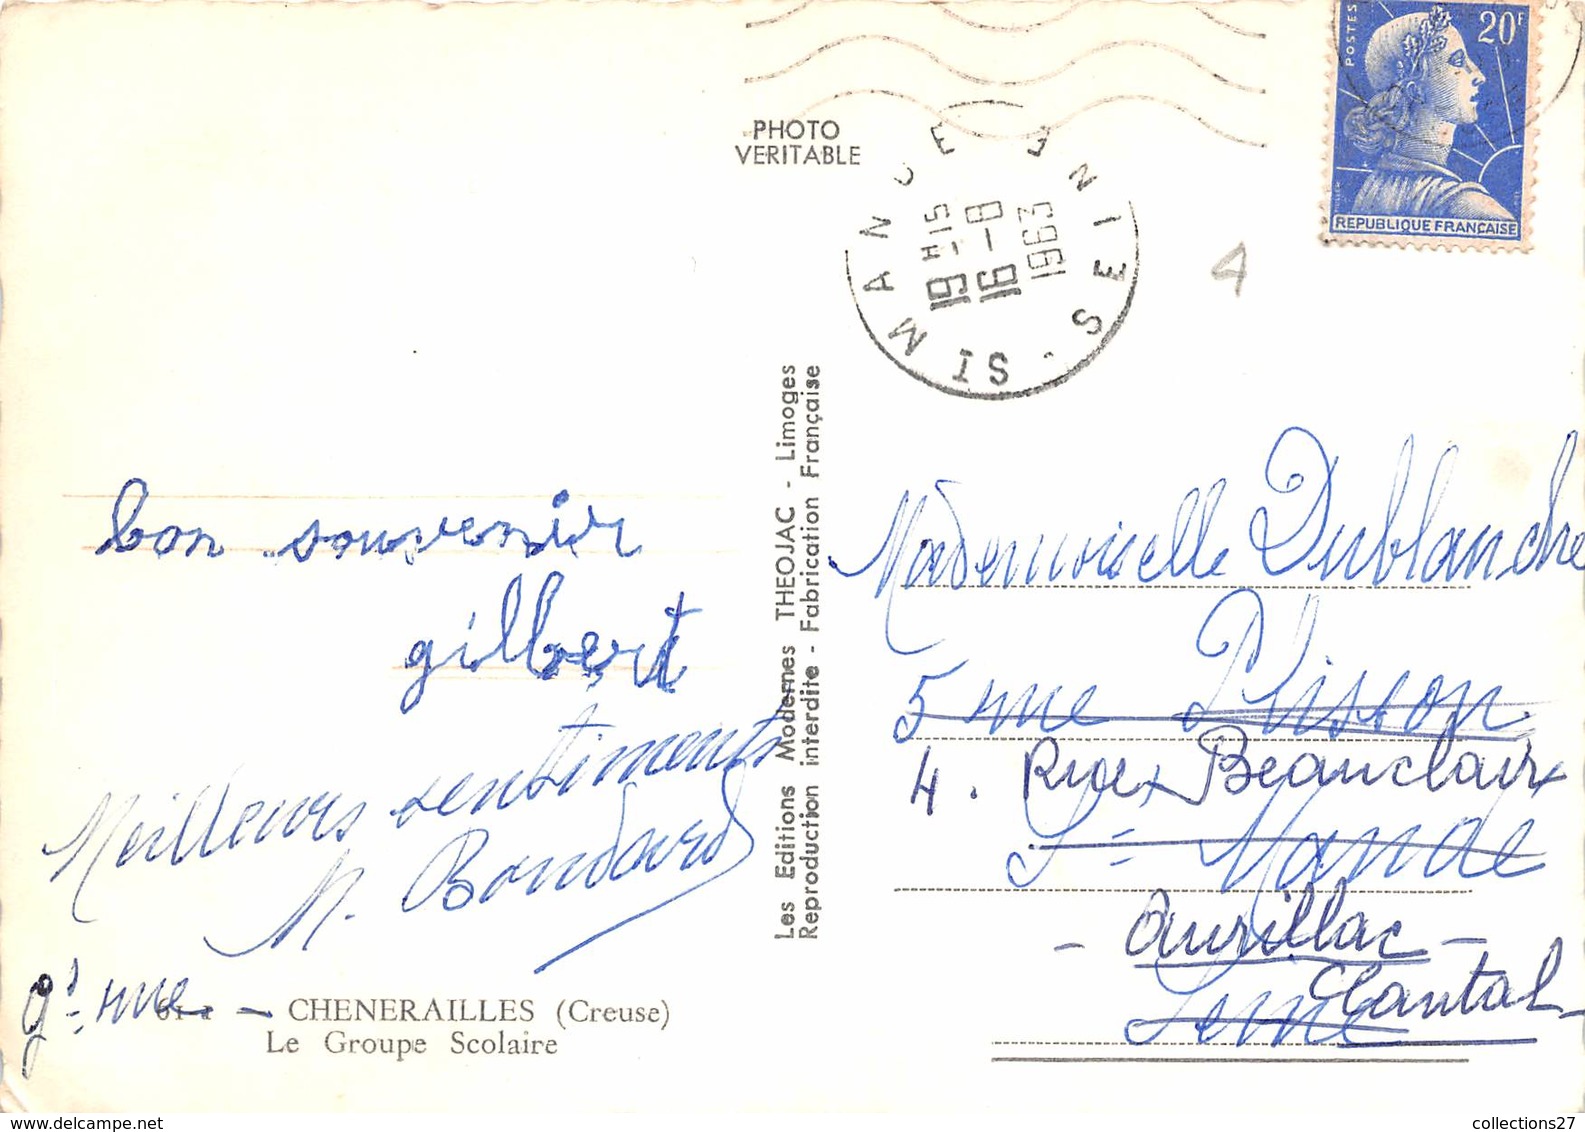 POSTES
20F
REPUBLIQUE FRANÇAISE
PHOTO
VERITABLE
ST MANDE · SEINE
19H15
16-8
1963
4
bon souvenir
gilbert
Meilleurs sentiments
M. Boudard
gd rue
CHENERAILLES (Creuse)
Le Groupe Scolaire
Les Editions Modernes THEOJAC - Limoges
Reproduction interdite - Fabrication Française
Mademoiselle Dublanche
5 rue Plisson
4. Rue Beauclair
St Mandé
- Aurillac -
Seine
Cantal
collections27